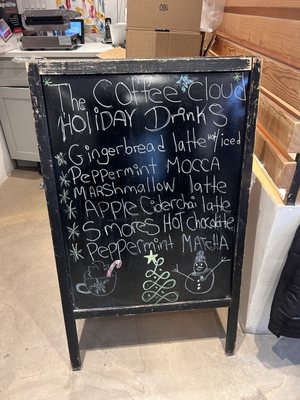 The Coffee Cloud
Holiday Drinks
Gingerbread latte Hot/iced
Peppermint Mocca
Marshmallow latte
Apple Ciderchai latte
S'mores Hot chocolate
Peppermint Matcha